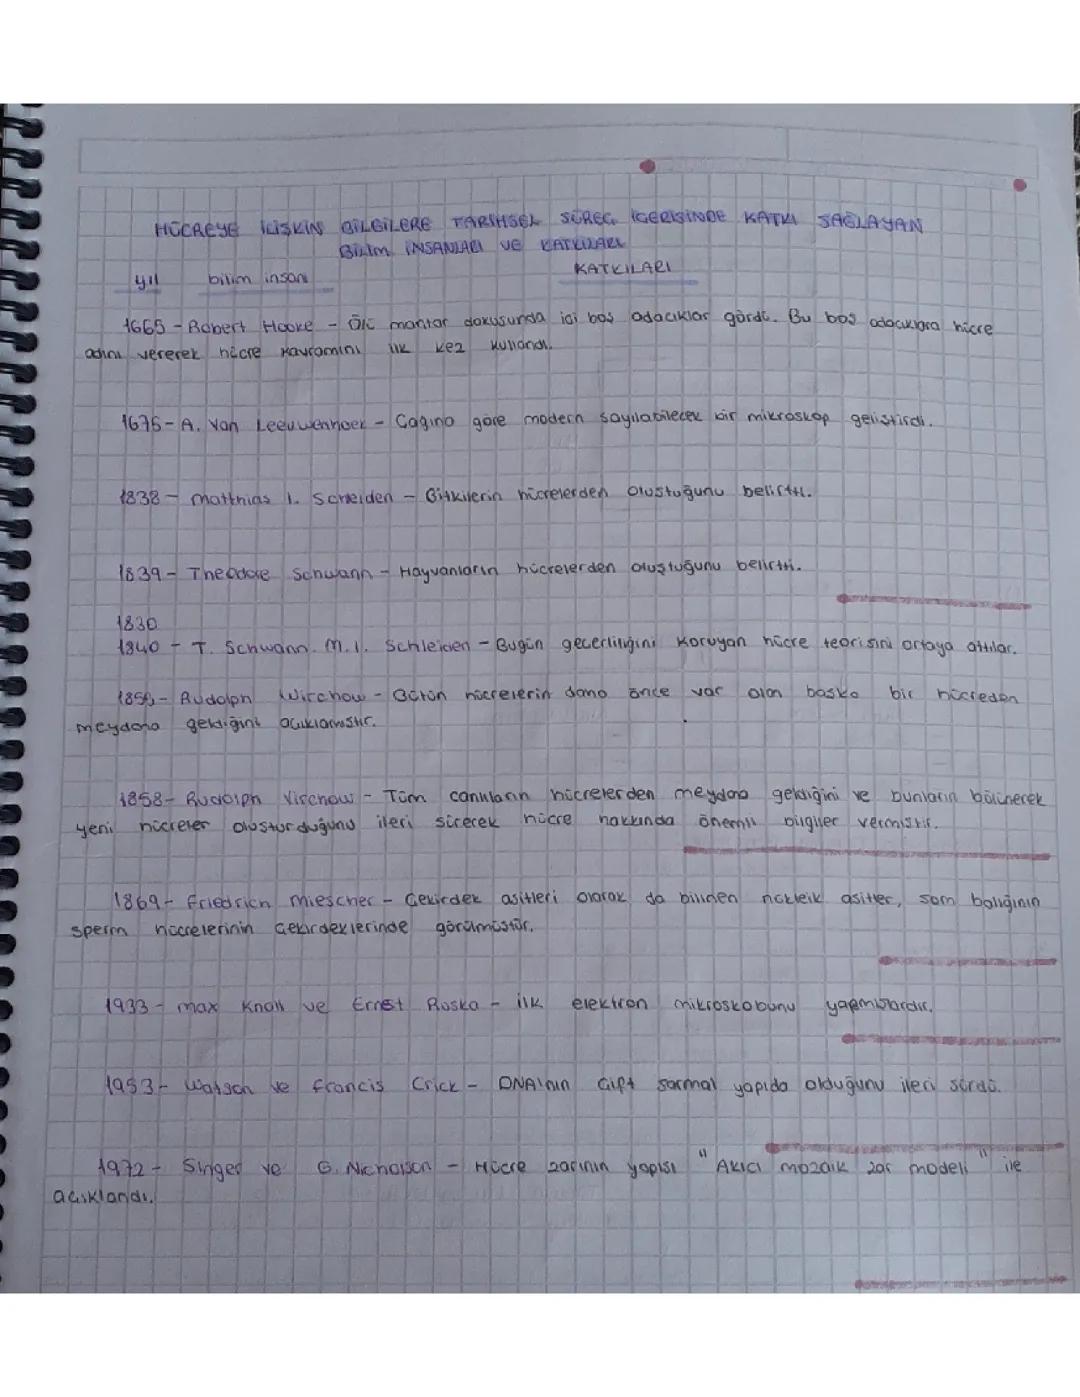 HÜCREYE İLİŞKİN BİLGİLERE TARİHSEL SÜREÇ İÇERİSİNDE KATKI SAĞLAYAN
BİLİM İNSANLARI VE KATKILARI
yıl bilim insanı KATKILARI
1665 - Robert Hooke - Ölü mantar dokusunda içi boş odacıklar gördü. Bu boş odacıklara hücre
adını vererek hücre kavramını ilk kez kullandı.
1675 - A. Van Leeuwenhoek - Çağına göre modern sayılabilecek bir mikroskop geliştirdi.
1838 - Matthias I. Scheiden - Bitkilerin hücrelerden oluştuğunu belirtti.
1839 - Theodore Schwann - Hayvanların hücrelerden oluştuğunu belirtti.
1830
1840 - T. Schwann. M.I. Schleiden - Bugün geçerliliğini koruyan hücre teorisini ortaya attılar.
1855 - Rudolph Wirchow - Bütün hücrelerin daha önce var olan başka bir hücreden
meydana geldiğini açıklamıştır.
1858 - Rudolph Virchow - Tüm canlıların hücrelerden meydana geldiğini ve bunların bölünerek
yeni hücreler oluşturduğunu ileri sürerek hücre hakkında önemli bilgiler vermiştir.
1869 - Friedrich Miescher - Çekirdek asitleri olarak da bilinen nükleik asitler, som balığının
sperm hücrelerinin çekirdeklerinde görülmüştür.
1933 - Max Knoll ve Ernst Ruska - İlk elektron mikroskobunu yapmışlardır.
1953 - Watson ve Francis Crick - DNA'nın çift sarmal yapıda olduğunu ileri sürdü.
1972 - Singer ve G. Nicholson - Hücre zarının yapısı "Akıcı mozaik zar modeli" ile
açıklandı.